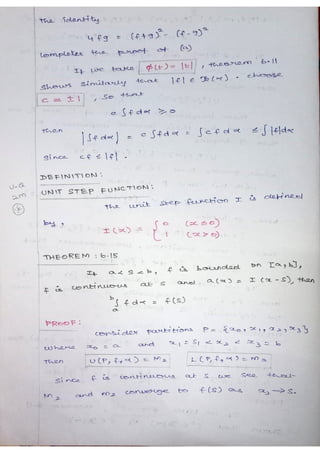 The identity
4fg = (f+g)² - (f-g)²
completes the proof of (a)
If we take ϕ(t) = |t|, theorem 6.11
shows similarly that |f| ∈ R(α). choose
c = ±1, so that
c ∫ f dα ≥ 0
Then
|∫ f dα| = c ∫ f dα = ∫ c f dα ≤ ∫ |f| dα
Since cf ≤ |f|.
DEFINITION:
U.Q
2M
UNIT STEP FUNCTION:
The unit step function I is defined
by,
I(x) = { 0 (x ≤ 0)
1 (x > 0).
THEOREM: 6.15
If a < s < b, f is bounded on [a,b],
f is continuous at s and α(x) = I(x-s), then
b∫a f dα = f(s)
PROOF:
consider partitions P = {x₀, x₁, x₂, x₃}
where x₀ = a and x₁ = s, < x₂ < x₃ = b
Then U(P, f, α) = M₂ L(P, f, α) = m₂
Since f is continuous at s we see that
M₂ and m₂ converge to f(s) as x₂ → s.